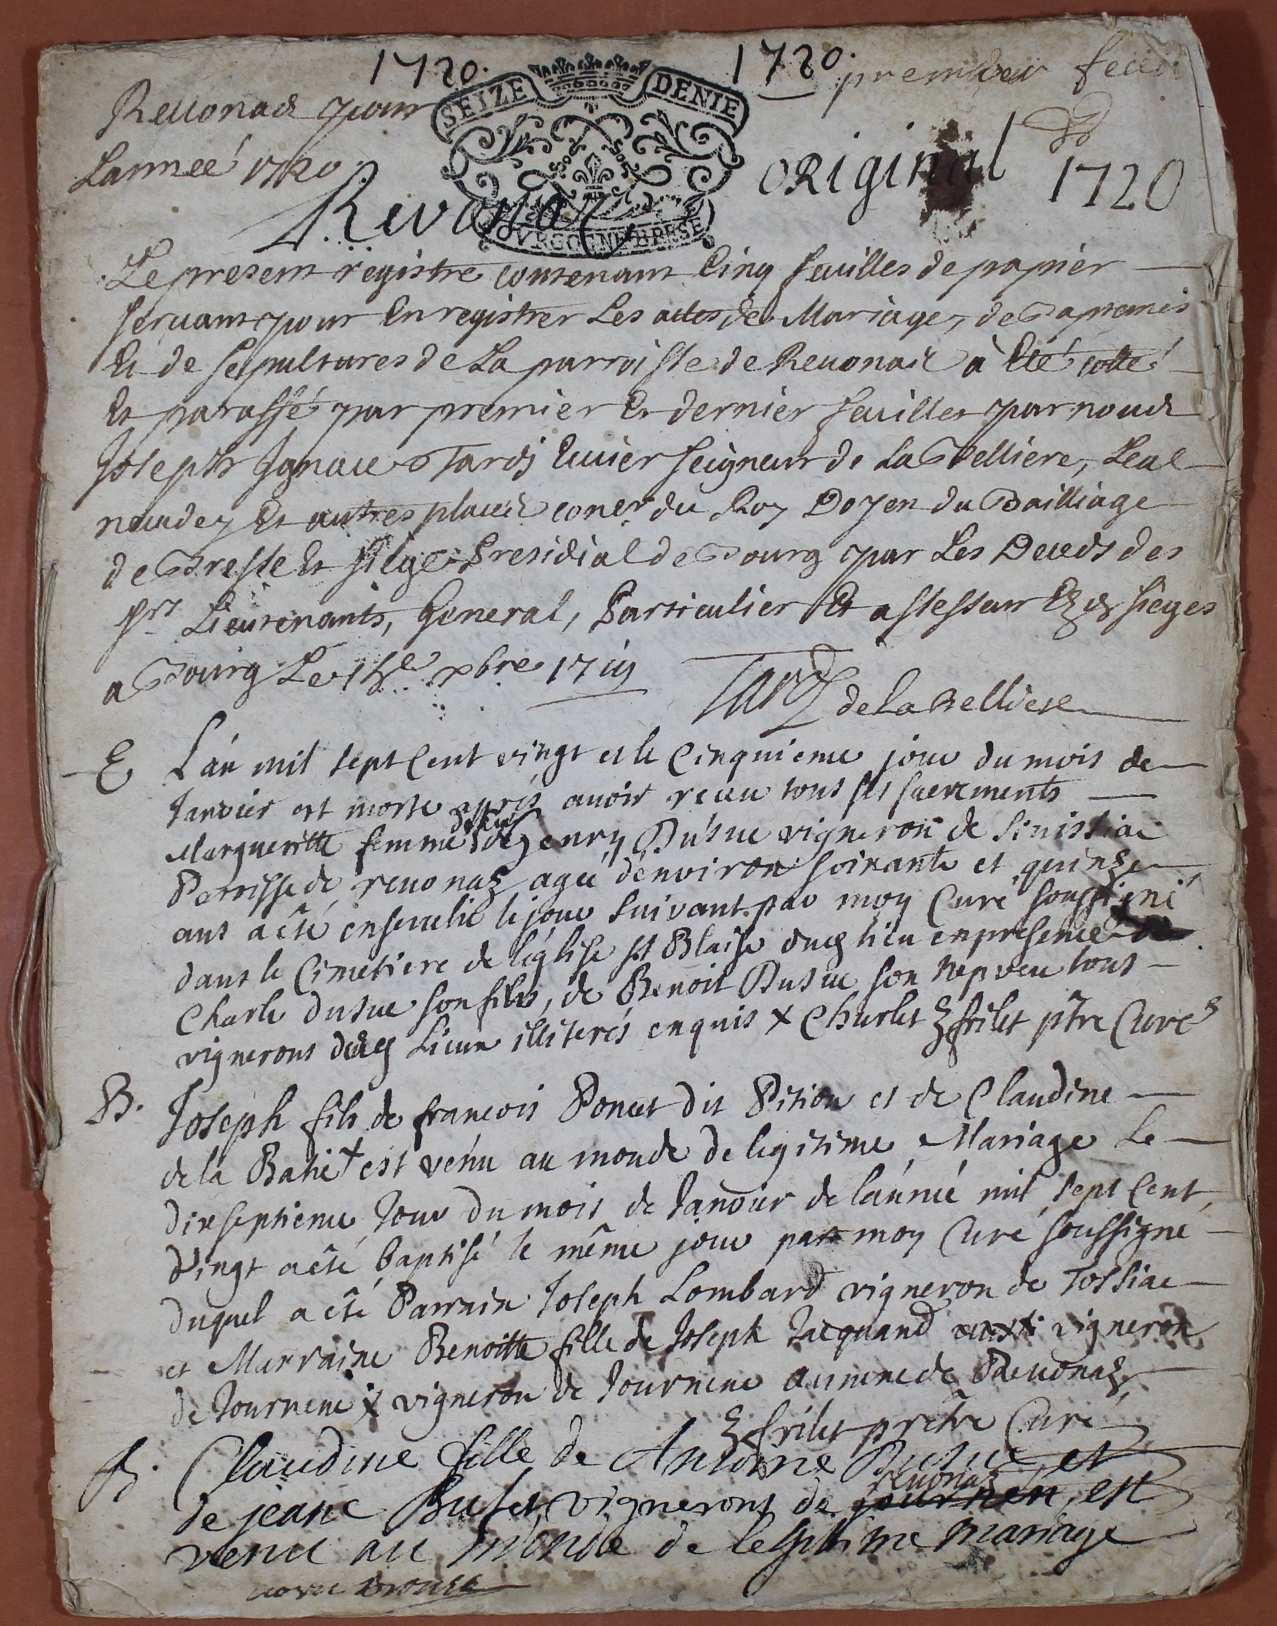 1720. 1720. premier feuil
Reuonas pour
Lannee 1720
SEIZE DENIE
BOVRGOGNE BRESSE
Revonas
ORiginal 1720
Le present registre contenant Cinq feuilles de papier
seruant pour Enregistrer Les actes de Mariage, de Baptemes
Et de sepultures de La parroisse de Reuonas à Eté cotté
Et paraffé par premier Et dernier feuillet par nous
Joseph Ignace Tardy Ecuier seigneur de La Belliere,
Et autres places coner du Roy Doyen du Bailliage
de Bresse Et siege Presidial de Bourg par Les Deceds des
srs Lieutenants, General, Particulier Et assesseur Esds sieges
a Bourg Le xbre 1719
Tardy de la Belliere
E L'an mil sept Cent vingt et le Cinquieme jour du mois de
Janvier est morte après avoir receu tous ses sacrements
Margueritte femme de henry Dusuc vigneron de Sinissiac
Perrisse de reuonas agée d'environ soixante et quinze
ans a été enseuelie le jour suivant par moy Curé soussigné
dans le Cimetiere de l'église st Blaise dud lieu en presence de
Charle Dusuc son fils, de Benoit Dusuc son nepveu tous
vignerons dud Lieux illiterés enquis x Charlet & frilet ptre Curé
B. Joseph fils de francois Poncet dit Pition et de Claudine
de la Batie + est venu au monde de legitime Mariage Le
dixseptieme Jour du mois de Janvier de l'année mil sept Cent
vingt a été baptisé le même jour par moy Curé soussigné
duquel a été Parrain Joseph Lombard vigneron de Tossiac
et Marraine Benoitte fille de Joseph Jacquand aussi vigneron
de Journene x vigneron de Journene annexe de Reuonas
& frilet prêtre Curé
B. Claudine fille de Antoine Dusuc et
de jeane Bufet, vignerons de journen reuonas, est
venu au monde de legitime mariage